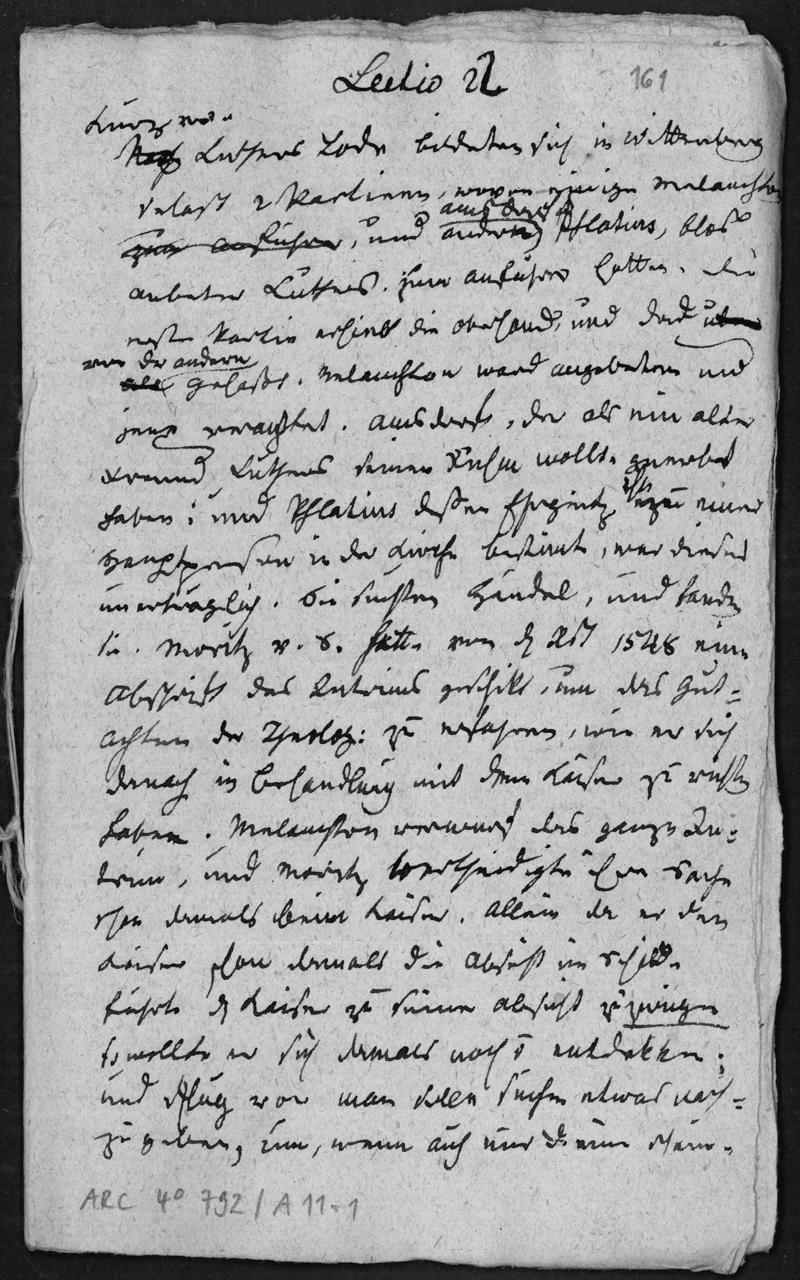 Lectio 22
161
kurz vor
Nach Luthers Tode bildeten sich in Wittenberg
selbst 2 Partieen, wovon einige Melanchton
zum anführer, und andere Amsdorf Flatius, blos
anbeter Luthers. zum anführer hatten. die
erste Partie erhielt die oberhand, und ward
von der andern
als gehaßt. Melanchton ward angebeten und
jene verachtet. Amsdorf, der als ein alter
Freund Luthers seinen Ruhm wollte geerbet
haben: und Flatius dessen Ehrgeitz ihn zu einer
Hauptperson in der Kirche bestimte, war dieses
unerträglich. Sie suchten Händel, und fanden
sie. Moritz v. S. hatte von 1548 eine
Abschrift des Interims geschikt, um das Gut=
achten der Theolog: zu erfahren, wie er sich
darnach in behandlung mit dem Kaiser zu richten
haben. Melanchton verwarf das ganze In=
terim, und Moritz vertheidigte ihre Sache
schon damals beim Kaiser. allein da er dem
Kaiser schon damals die Absicht im Schilde
führte d Kaiser zu seiner absicht zu zwingen
so wollte er sich damals noch nicht entdekken;
und schlug vor man solle suchen etwas nach=
zu geben, um, wenn auch nur d einen schein=
ARC 4° 792 / A 11-1